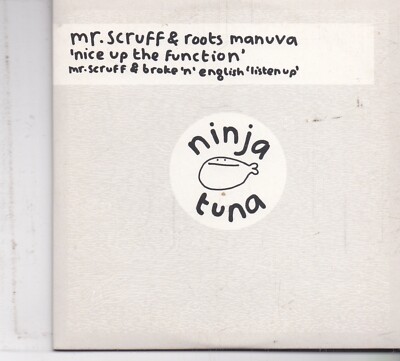 mr. scruff & roots manuva
'nice up the function'
mr. scruff & broke 'n' english 'listen up'
ninja
tuna